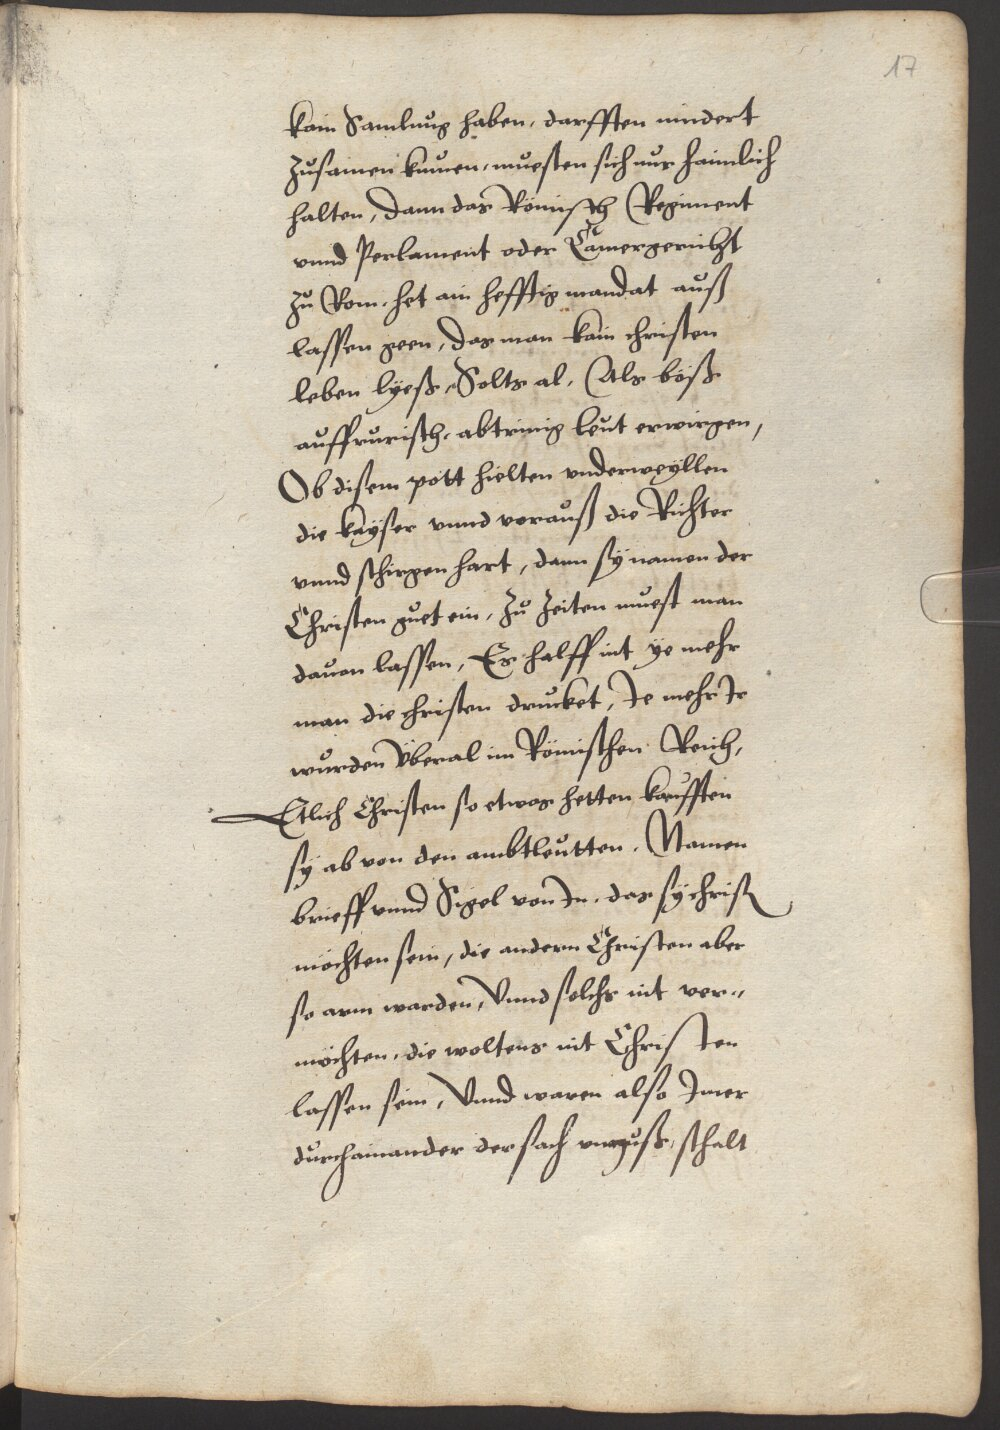 17
kain Samlung haben, darfften nindert
zusamen kumen, muesten sich nur haimlich
halten, dann das Römisch Regiment
vnnd Perlament oder Camergericht
zu Rom, het ain hefftig mandat auß
lassen geen, das man kain christen
leben lyeß, Solts al, Als böß
auffrurisch, abtrinig leut erwirgen,
Ob disem pott hielten vnderweyllen
die kayser vnnd vorauß die Richter
vnnd schirgen hart, dann sy namen der
Christen guet ein, Zu zeiten muest man
dauon lassen, Es halff nit ye mehr
man die christen drucket, Je mehr Jr
wurden Vberal im Römischen Reich,
Etlich Christen so etwas hetten kaufften
sy ab von den ambtleutten, Namen
brieff vnnd Sigel von Jn, das sy christ
möchten sein, die andern Christen aber
so arm warden, Vnnd solchs nit ver-
möchten, die woltens nit Christen
lassen sein, Vnnd waren also Jmer
durchainander der sach vnguß, schalt